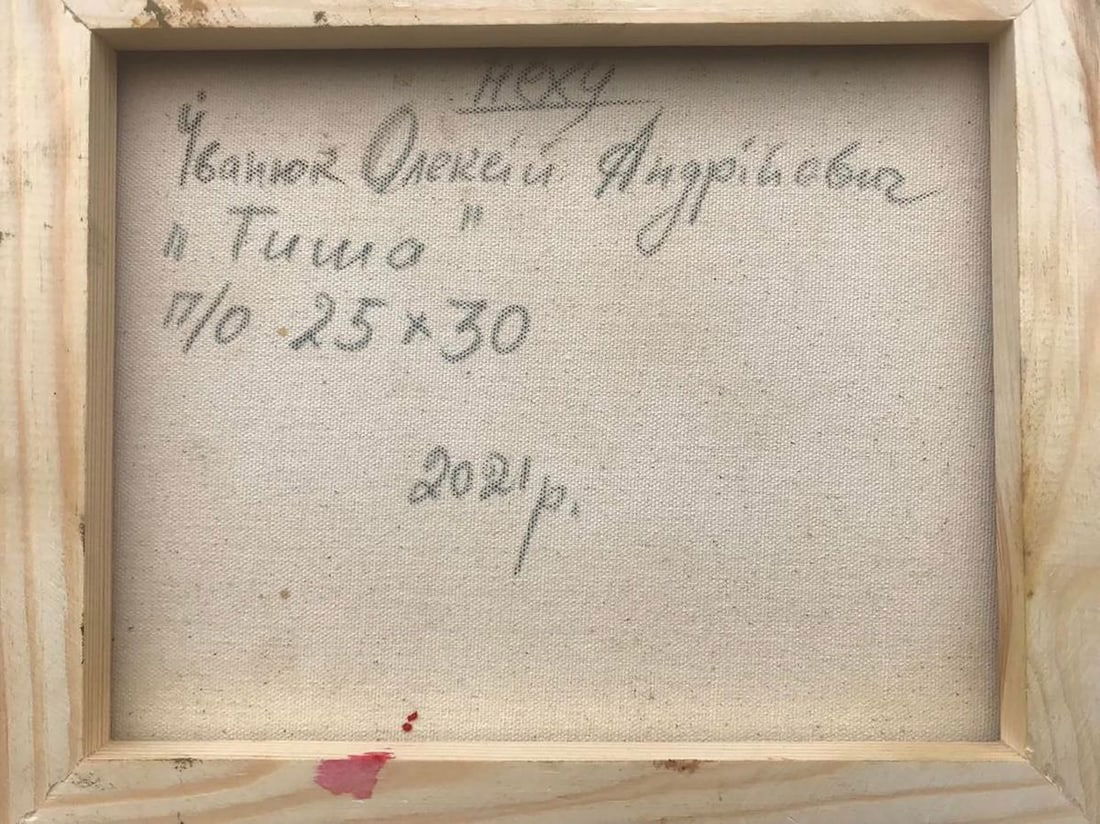 НСХУ
Іванюк Олексій Андрійович
"Тиша"
п/о 25×30
2021р.